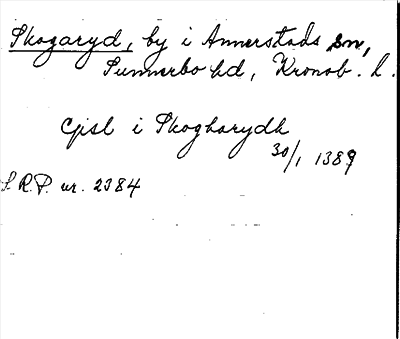 Skogaryd, by i Annerstads sn,
Sunnerbo hd, Kronob. l.
Gisl i Skogharydh
30/1 1389
S.R.P. nr. 2384